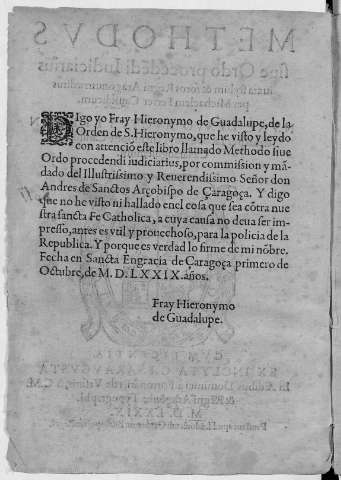 DIgo yo Fray Hieronymo de Guadalupe, de la
Orden de S. Hieronymo, que he visto y leydo
con attenciõ este libro llamado Methodo siue
Ordo procedendi iudiciarius, por commission y mã-
dado del Illustrissimo y Reuerendissimo Señor don
Andres de Sanctos Arçobispo de Çaragoça. Y digo
que no he visto ni hallado enel cosa que sea cõtra nue
stra sancta Fe Catholica, a cuya causa no deua ser im-
presso, antes es vtil y prouechoso, para la policia de la
Republica. Y porque es verdad lo firme de mi nõbre.
Fecha en Sancta Engracia de Çaragoça primero de
Octubre, de M. D. LXXIX. años.
Fray Hieronymo
de Guadalupe.